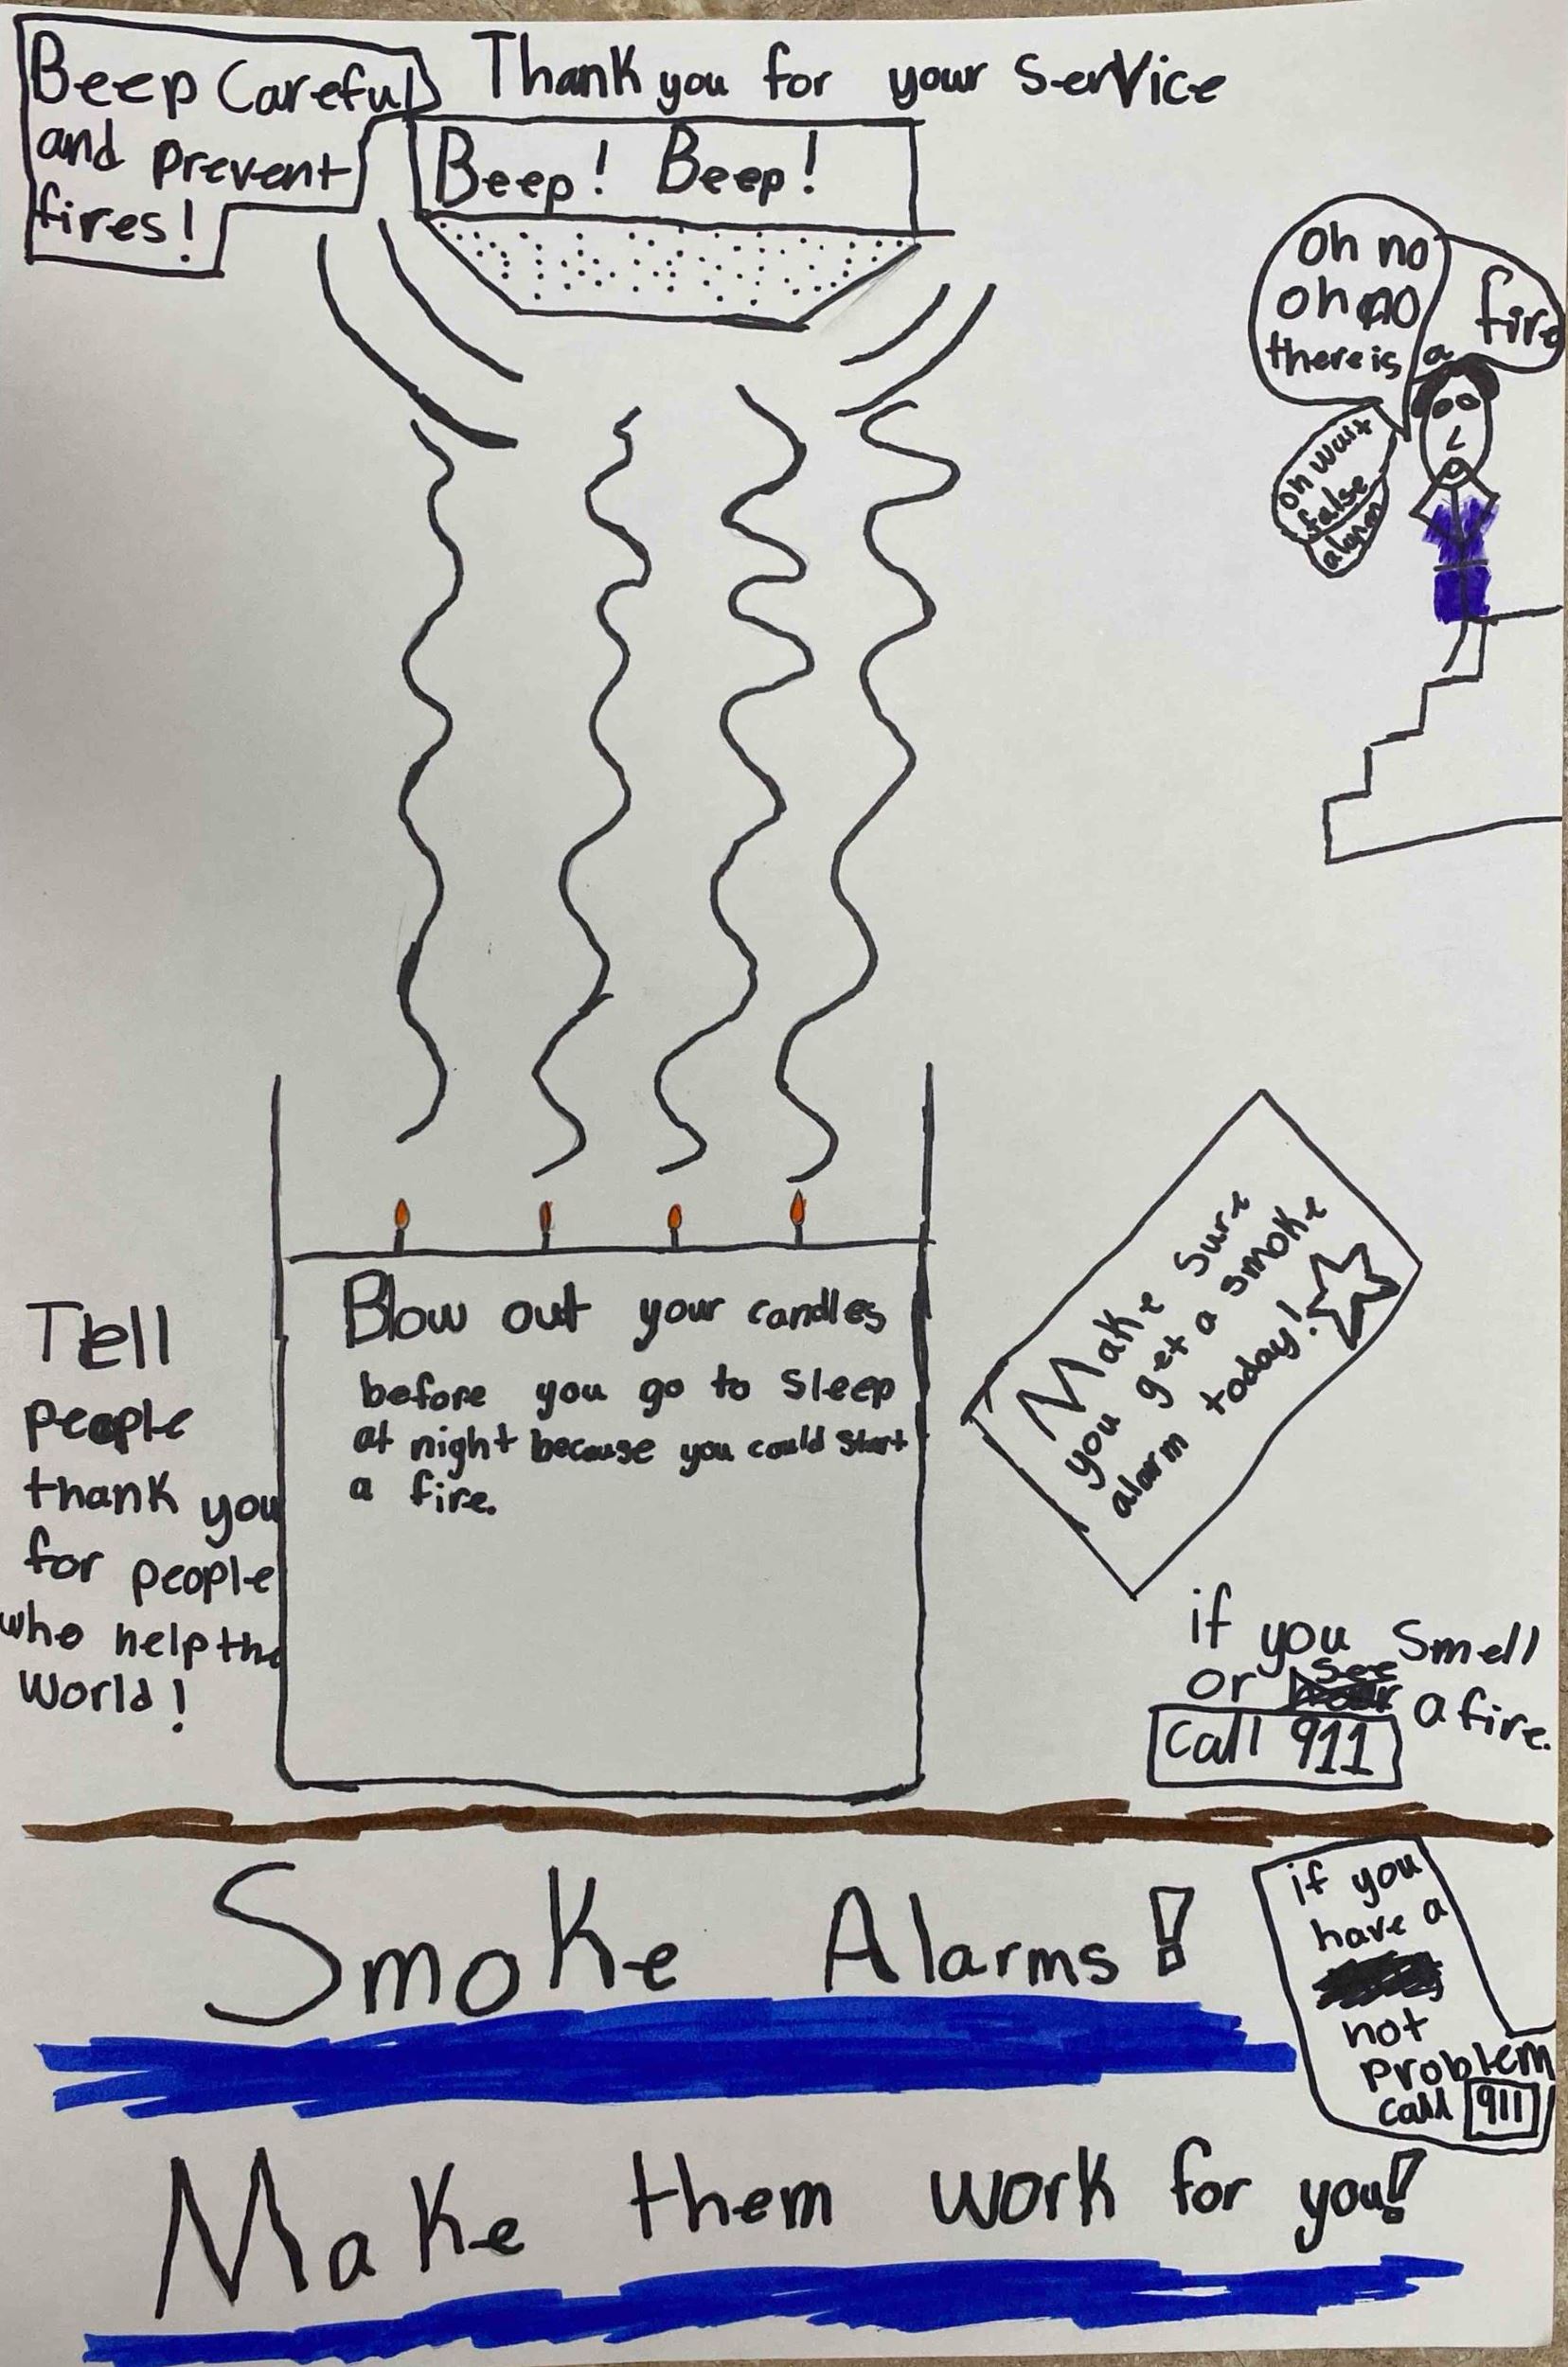 Beep Careful
and prevent
fires!
Thank you for your service
Beep! Beep!
oh no
oh no
there is
a fire
oh wait
false
alarm
Blow out your candles
before you go to sleep
at night because you could start
a fire.
Tell
people
thank you
for people
who help the
world!
Make sure
you get a smoke
alarm today!
if you smell
or see a fire.
call 911
Smoke Alarms!
if you
have a
hot
problem
call 911
Make them work for you!